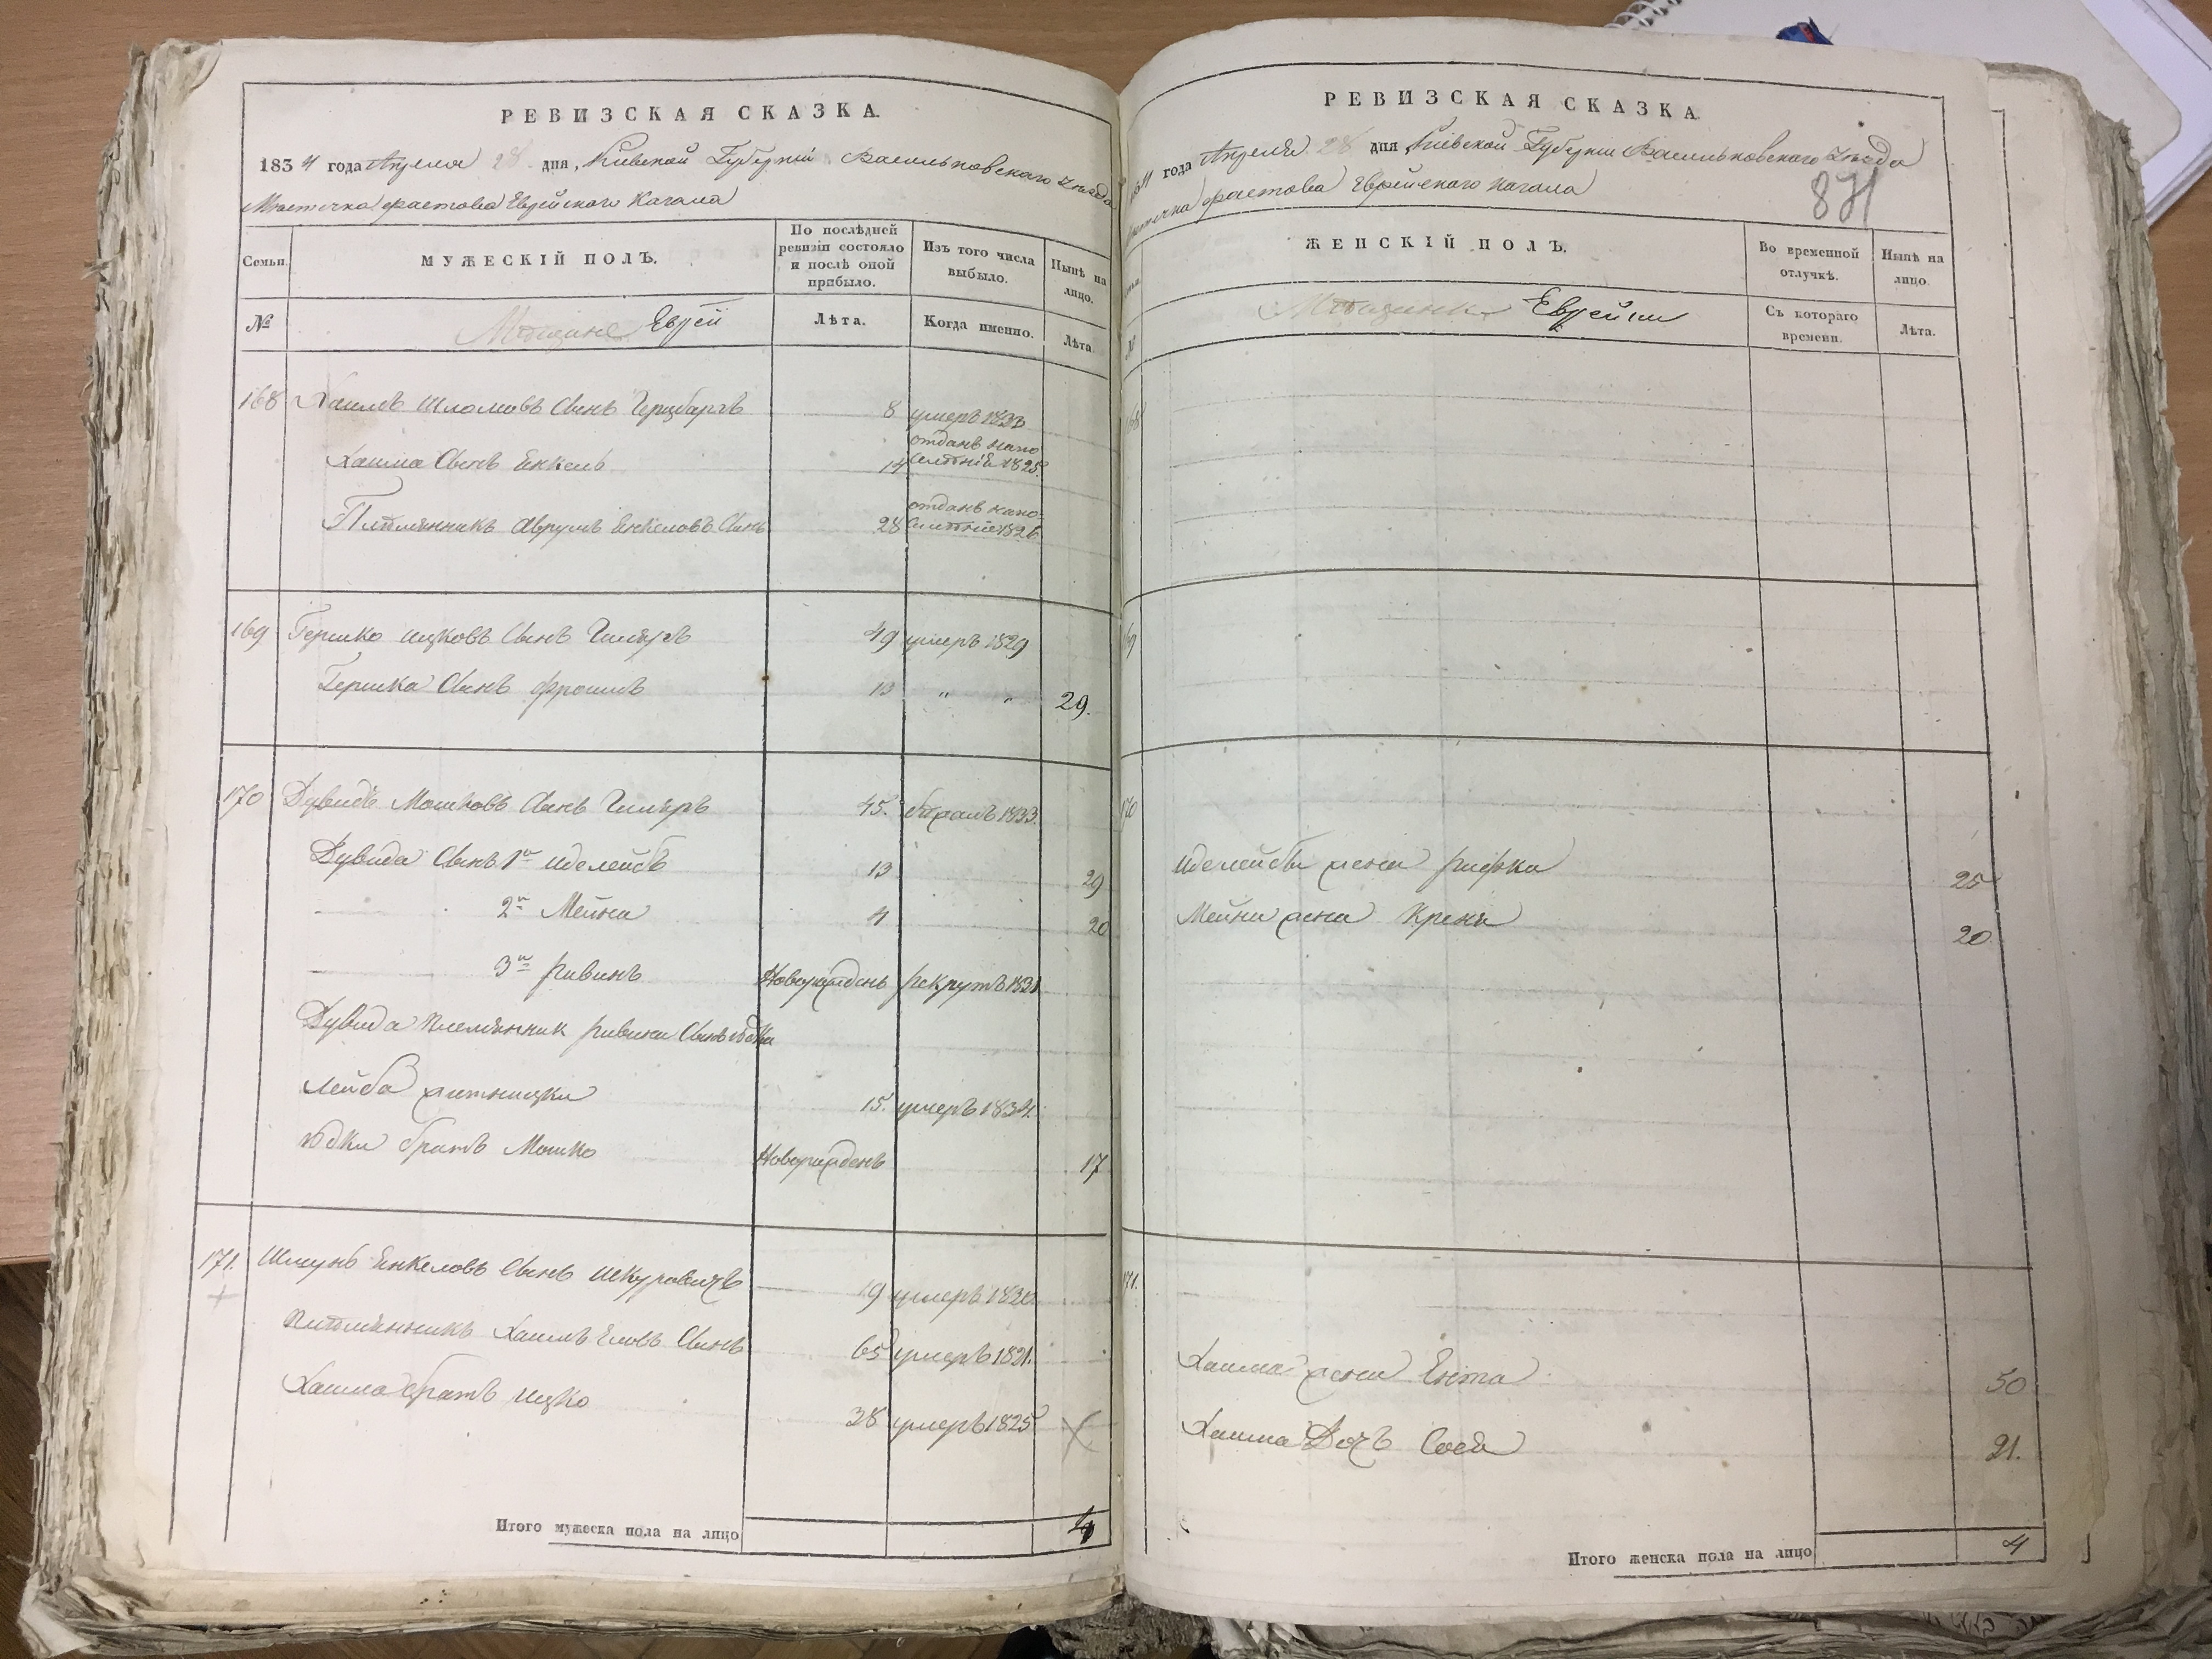 РЕВИЗСКАЯ СКАЗКА.
1834 года Апреля 28 дня, Кіевской Губерніи Васильковскаго уезда
Местечка Фастова Еврейскаго Кагала
Семьи.
МУЖЕСКІЙ ПОЛЪ.
По послѣдней ревизіи состояло и послѣ оной прибыло.
Изъ того числа выбыло.
Нынѣ на лицо.
№
Мѣщане Еврей
Лѣта.
Когда именно.
Лѣта.
168 Хаимъ Шломовъ Сынъ Герцбаргъ 8 умеръ 1833
Хаима Сынъ Енкель 14 отданъ на посѣленіе 1825
Плѣмянникъ Аврумъ Енкеловъ Сынъ 28
169 Гершко Ицковъ Сынъ 49 умеръ 1829
Гершка Сынъ Фроимъ 13 " " 29.
170 Дувидъ Мошковъ Сынъ 45. 1833.
Дувида Сынъ 1й Иделейбъ 13 29
2й Мейна 4 20
3й Ривинъ Новорожденъ рекрутъ 1831
Дувида племянник Ривина Сынъ Юдка
Лейба 15. умеръ 1834.
Юдки братъ Мошко Новорожденъ 17
171. Шмунъ Енкеловъ Сынъ Шкуровичъ 19 умеръ
Плѣмянникъ Хаимъ Сынъ 65 умеръ 1821.
Хаима братъ Ицко 38 умеръ 1825
Итого мужеска пола на лицо 4
РЕВИЗСКАЯ СКАЗКА.
года Апреля 28 дня, Кіевской Губерніи Васильковскаго уезда
Фастова Еврейскаго Кагала
871
ЖЕНСКІЙ ПОЛЪ.
Во временной отлучкѣ.
Нынѣ на лицо.
Мѣщанки Еврейки
Съ котораго времени.
Лѣта.
168
169
170
Иделейбы жена Рифка 25
Мейни жена Креня 20
171.
Хаима жена Ента 50
Хаима Дочь Сося 21.
Итого женска пола на лицо 4